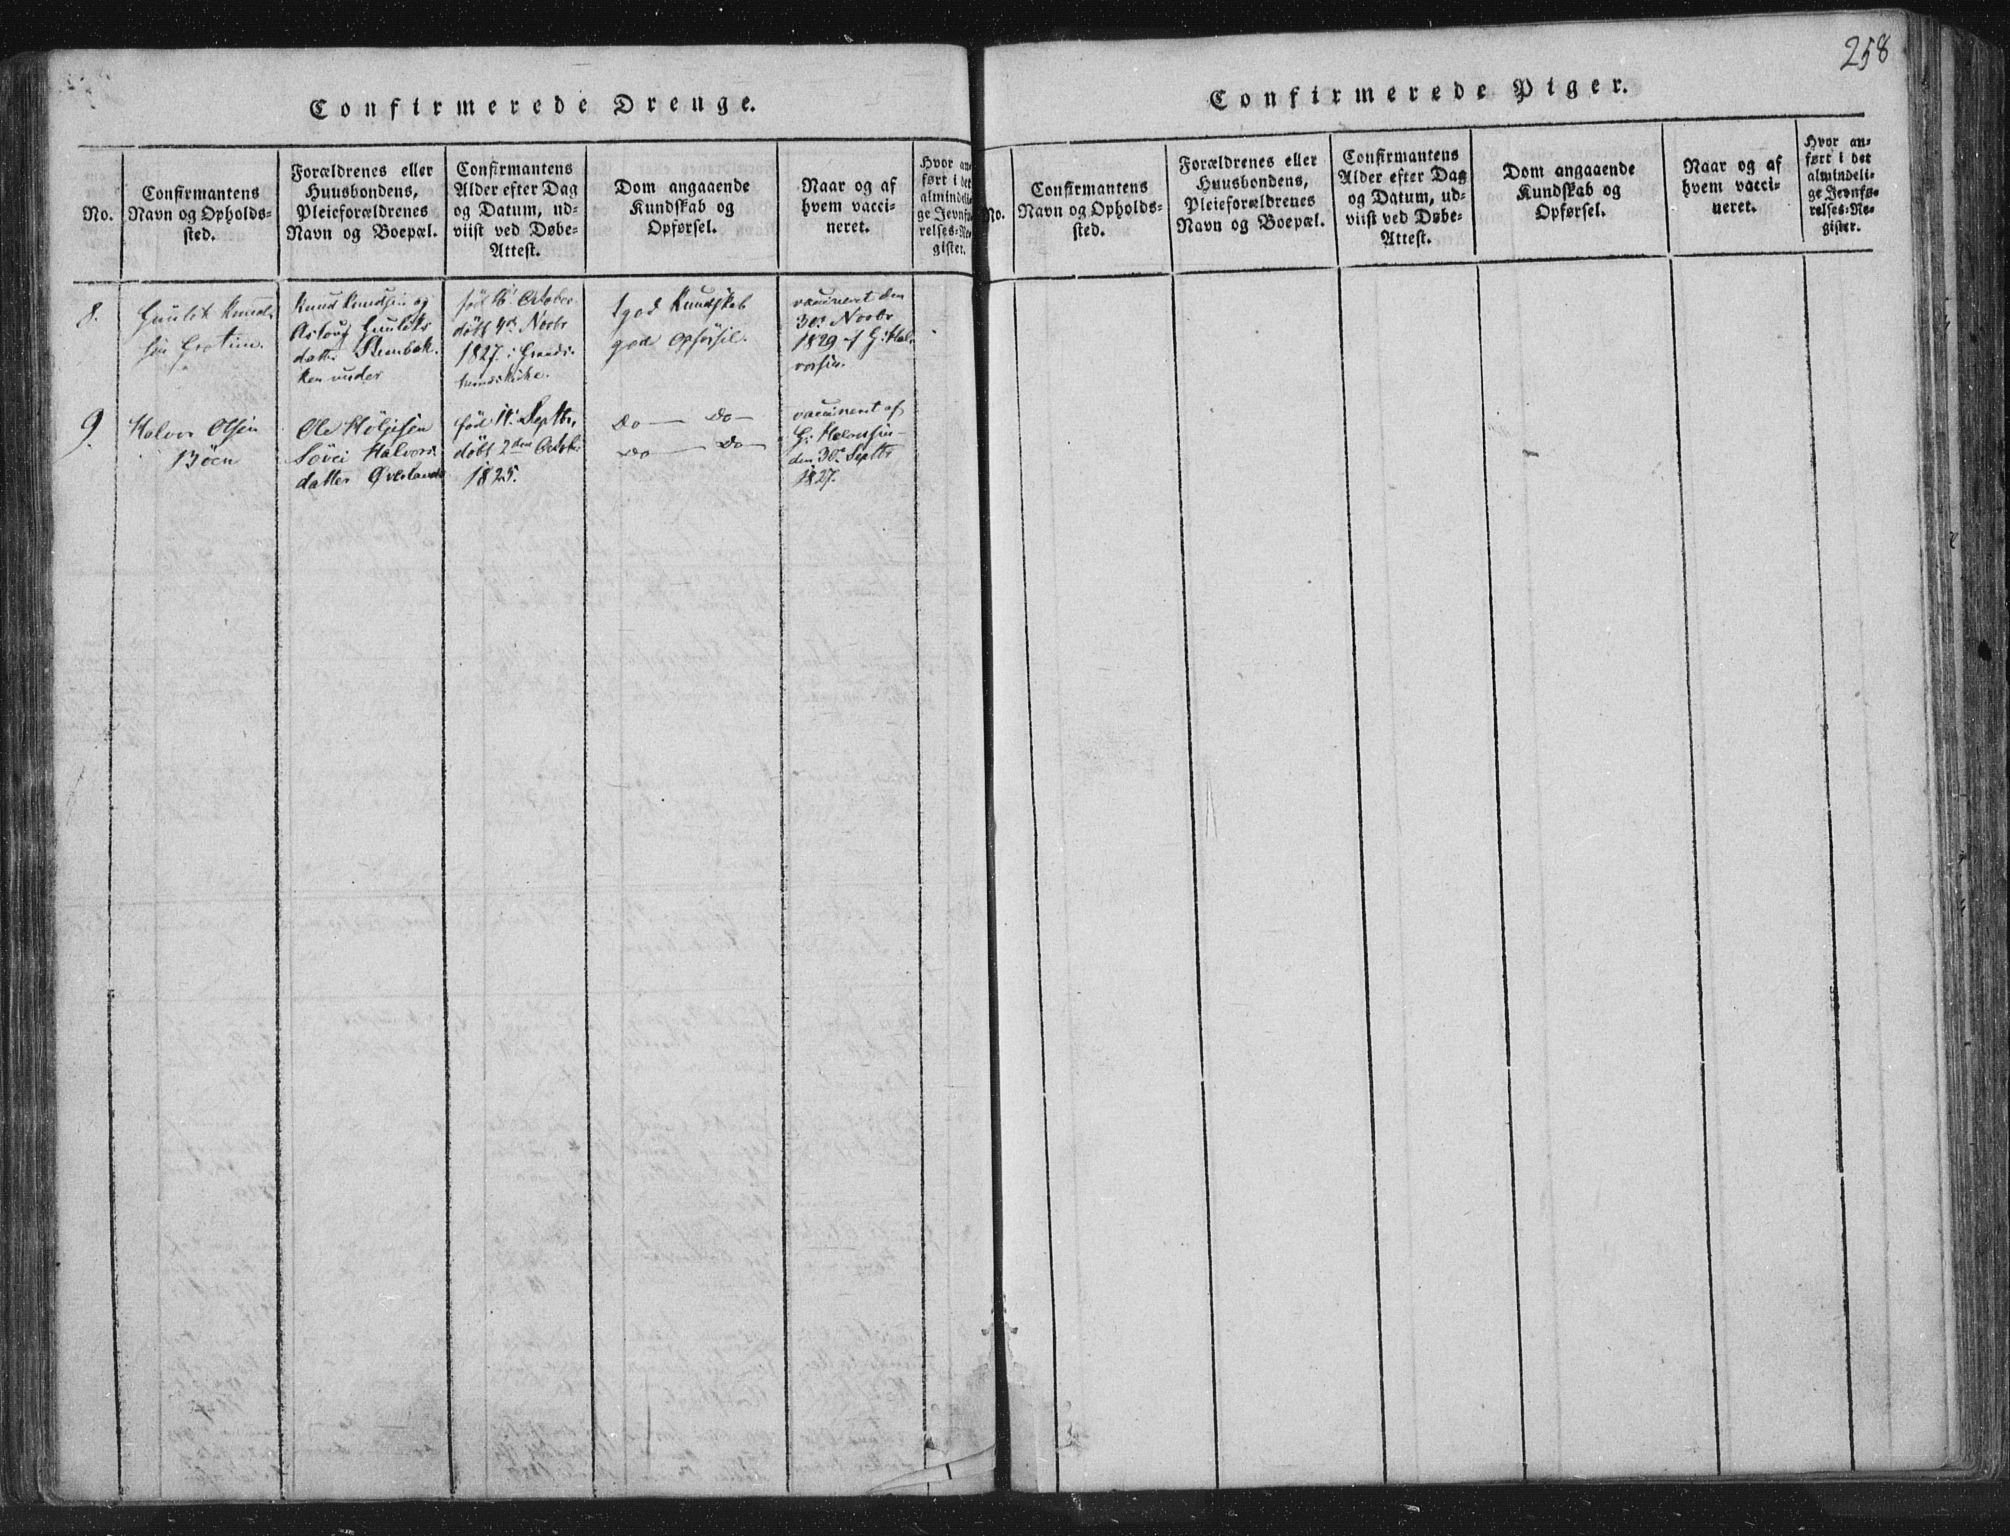 258
Confirmerede Drenge.
No.
Confirmantens
Navn og Opholds-
sted.
Forældrenes eller
Huusbondens,
Pleieforældrenes
Navn og Boepæl.
Confirmantens
Alder efter Dag
og Datum, ud-
viist ved Døbe-
Attest.
Dom angaaende
Kundskab og
Opførsel.
Naar og af
hvem vacci-
neret.
Hvor an-
ført i det
almindeli-
ge Jevnfø-
relses-Re-
gister.
8.
Gunlik Knud-
sen
Knud Knudsen og
Asloug Gunliks
datter
under
fød 16' October
døbt 4de Novbr
1827 i
kirke.
god Kundskab
god Opførsel.
vaccineret den
30' Novbr
1829 af G. Hal
vorsen.
9.
Halvor Olsen
Bøen
Ole
Halvors
datter Øverland
fød 11' Septbr,
døbt 2den Octobr
1825.
Do — Do —
Do — Do —
vaccineret af
G. Halvorsen
den 30' Septbr
1827.
Confirmerede Piger.
No.
Confirmantens
Navn og Opholds-
sted.
Forældrenes eller
Huusbondens,
Pleieforældrenes
Navn og Boepæl.
Confirmantens
Alder efter Dag
og Datum, ud-
viist ved Døbe-
Attest.
Dom angaaende
Kundskab og
Opførsel.
Naar og af
hvem vacci-
neret.
Hvor an-
ført i det
almindeli-
ge Jevnfø-
relses-Re-
gister.